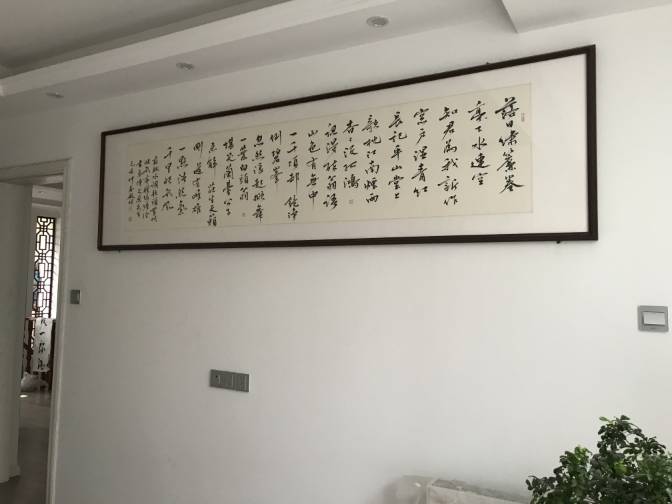 落日繡簾卷
亭下水連空
知君為我新作
窗户湿青红
長記平山堂上
欹枕江南烟雨
杳杳没孤鴻
認得醉翁語
山色有無中
一千頃都鏡淨
倒碧峰
忽然浪起掀舞
一葉白頭翁
堪笑蘭臺公子
未解莊生天籟
剛道有雌雄
一點浩然氣
千里快哉風